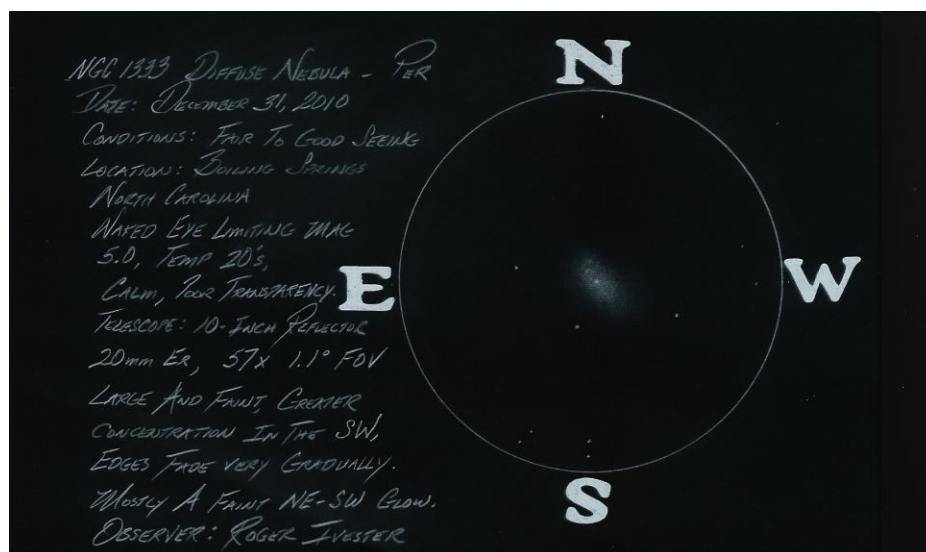 NGC 1333 DIFFUSE NEBULA - PER
DATE: DECEMBER 31, 2010
CONDITIONS: FAIR TO GOOD SEEING
LOCATION: BOILING SPRINGS
NORTH CAROLINA
NAKED EYE LIMITING MAG
5.0, TEMP 20's,
CALM, POOR TRANSPARENCY.
TELESCOPE: 10-INCH REFLECTOR
20mm EP, 57x 1.1° FOV
LARGE AND FAINT, GREATER
CONCENTRATION IN THE SW,
EDGES FADE VERY GRADUALLY.
MOSTLY A FAINT NE-SW GLOW.
OBSERVER: ROGER IVESTER
N
E
W
S